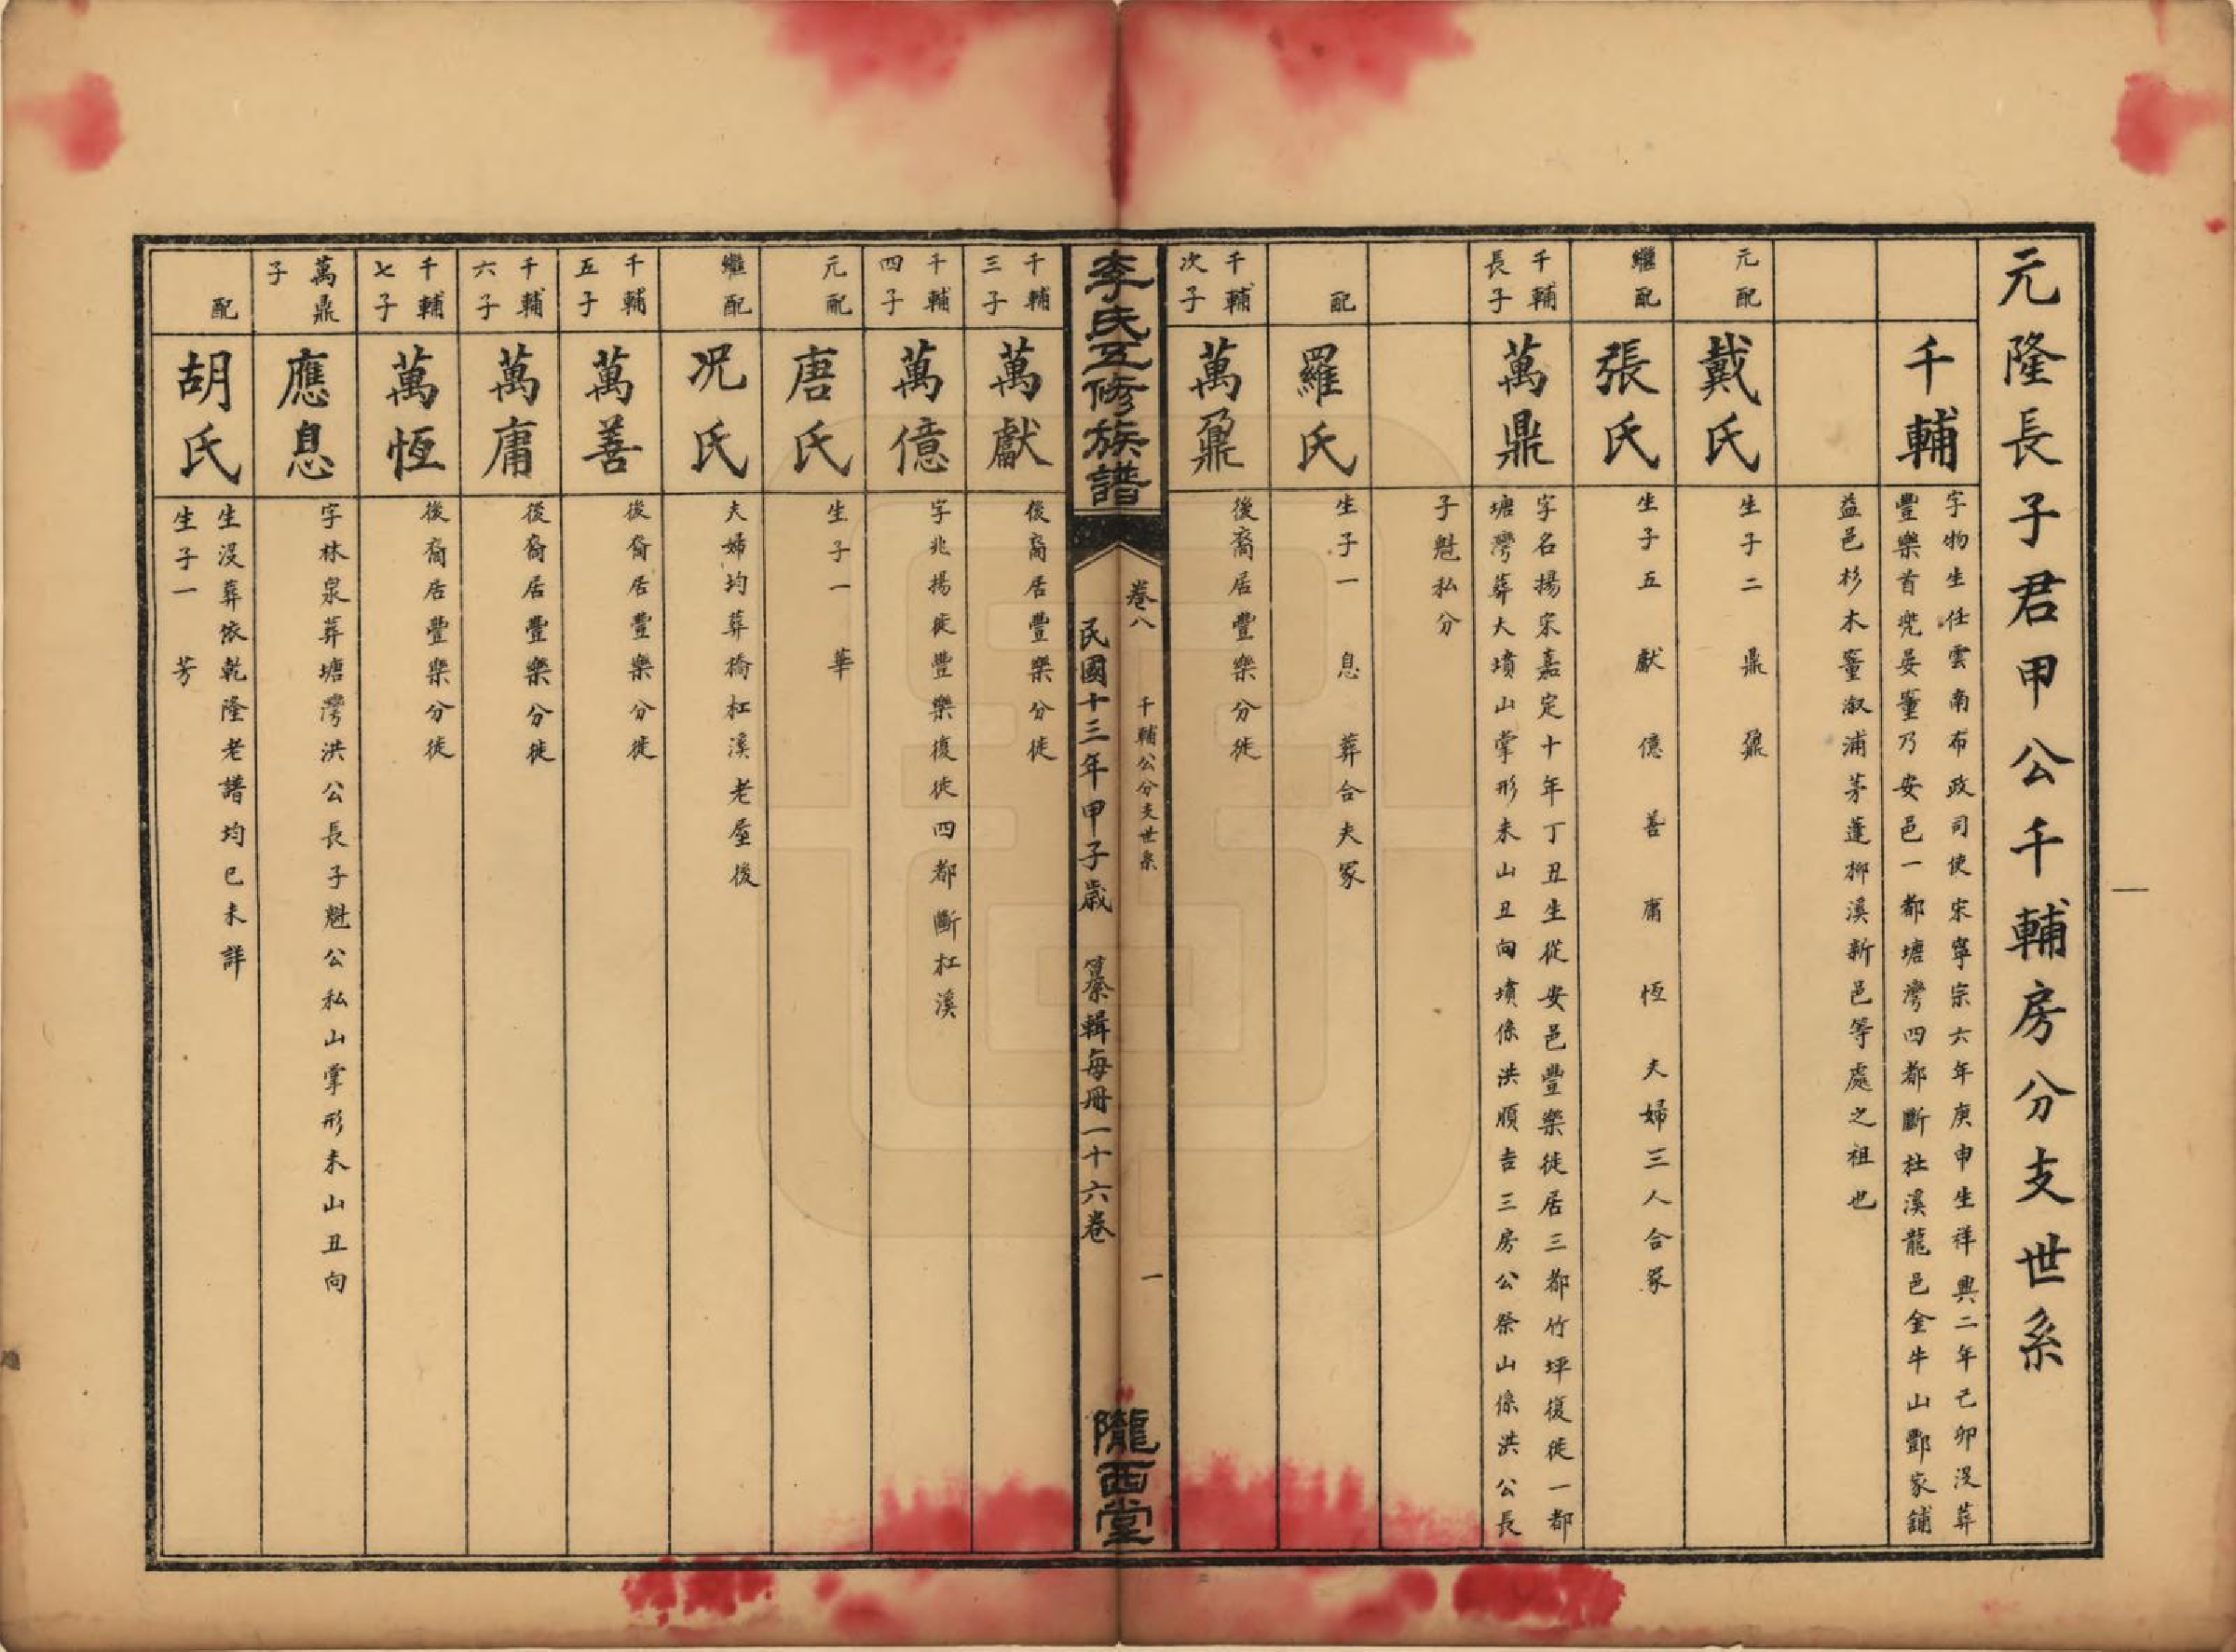 元隆長子君甲公千輔房分支世系
千輔
字物生任雲南布政司使宋寧宗六年庚申生祥興二年己卯沒葬
豐樂首兠晏薑乃安邑一都塘灣四都斷杜溪龍邑金牛山鄷家舖
益邑杉木薑溆浦茅蓬柳溪新邑等處之祖也
元配
戴氏
生子二 鼎 鼐
繼配
張氏
生子五 獻 億 善 庸 恆 夫婦三人合冢
千輔
長子
萬鼎
字名揚宋嘉定十年丁丑生從安邑豐樂徙居三都竹坪復徙一都
塘灣葬大墳山掌形未山丑向墳係洪順吉三房公祭山係洪公長
子魁私分
配
羅氏
生子一 息 葬合夫冢
千輔
次子
萬鼐
後裔居豐樂分徙
李氏五修族譜
卷八
千輔公分支世系
一
民國十三年甲子歲 纂輯每冊一十六卷
隴西堂
千輔
三子
萬獻
後裔居豐樂分徙
千輔
四子
萬億
字兆揚徙豐樂復徙四都斷杠溪
元配
唐氏
生子一 華
繼配
况氏
夫婦均葬橋杠溪老屋後
千輔
五子
萬善
後裔居豐樂分徙
千輔
六子
萬庸
後裔居豐樂分徙
千輔
七子
萬恆
後裔居豐樂分徙
萬鼎
子
應息
字林泉葬塘灣洪公長子魁公私山掌形未山丑向
配
胡氏
生沒葬依乾隆老譜均已未詳
生子一 芳